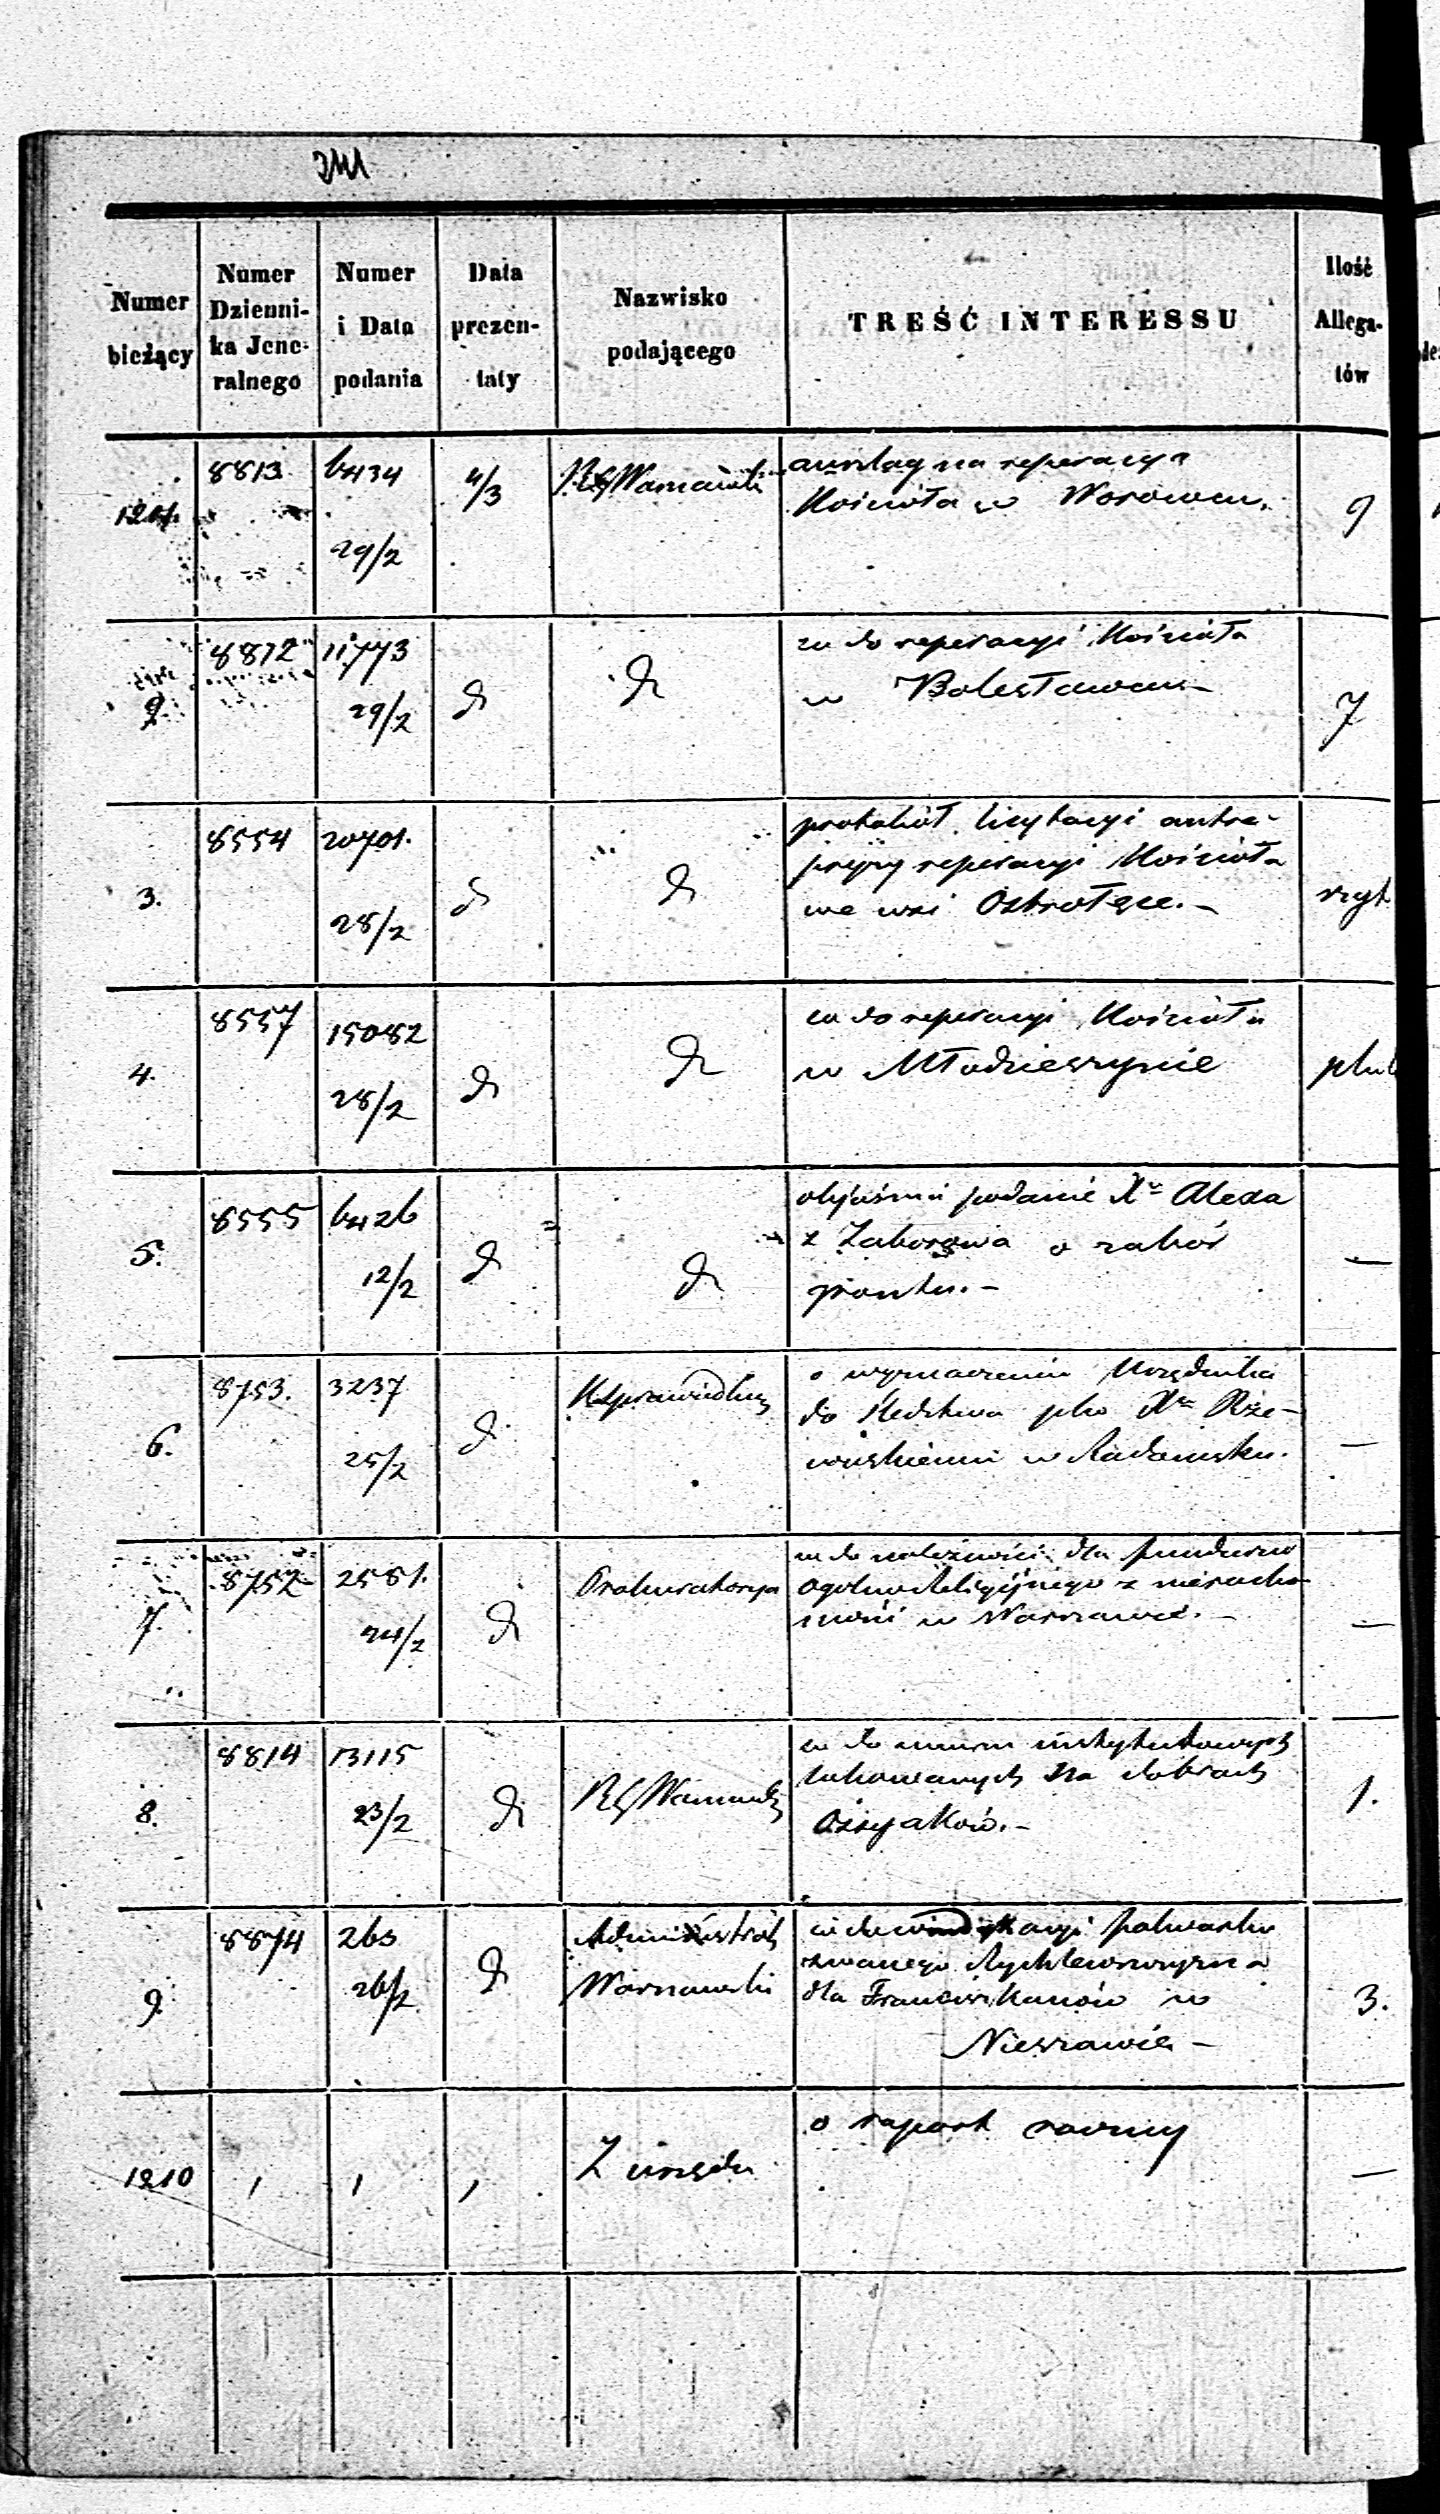 Numer bieżący | Numer Dziennika Jeneralnego | Numer i Data podania | Data prezentaty | Nazwisko podającego | TREŚĆ INTERESSU | Ilość Allegatów
8813 | 29/2 | 4/3 | R G Warszawski | anszlag na reperacyą
Kościoła w | 9
2 | 8872 | 11773
29/2 | d | d | co do reperacyi Kościoła
w Bolesławcu – | 7
3. | 8554 | 20701.
28/2 | d | d | protokół licytacyi antre-
pryzy reperacyi Kościoła
we wsi Ostrołęce. – | szyt
4. | 8557 | 15082
28/2 | d | d | co do reperacyi Kościoła
w Młodzieszynie | plik
5. | 8555 | 6426
12/2 | d | d | objaśnia podanie Xa
z Zaborowa o zabór
gruntu. – | —
6. | 8753. | 3237
25/2 | d | K Sprawiedliwoś | o wyznaczenie Urzędnika
do śledztwa plko Xu Rze-
wuskiemu w Radomsku. | —
7. | 8752 | 2581.
24/2 | d | Prokuratorya | co do należności dla funduszu
ogólno Religijnego z nierucho-
mości w Warszawie. – | —
8. | 8814 | 13115
23/2 | d | R G Warszawski | co do summ instytutowych
lokowanych na dobrach
Ossyaków. – | 1.
9. | 8874 | 263
26/2 | d | Administrat
Warszawski | co do windykacyi folwarku
zwanego
dla Franciszkanów w
Nieszawie – | 3.
1210 | , | , | , | Z urzędu | o raport roczny | —